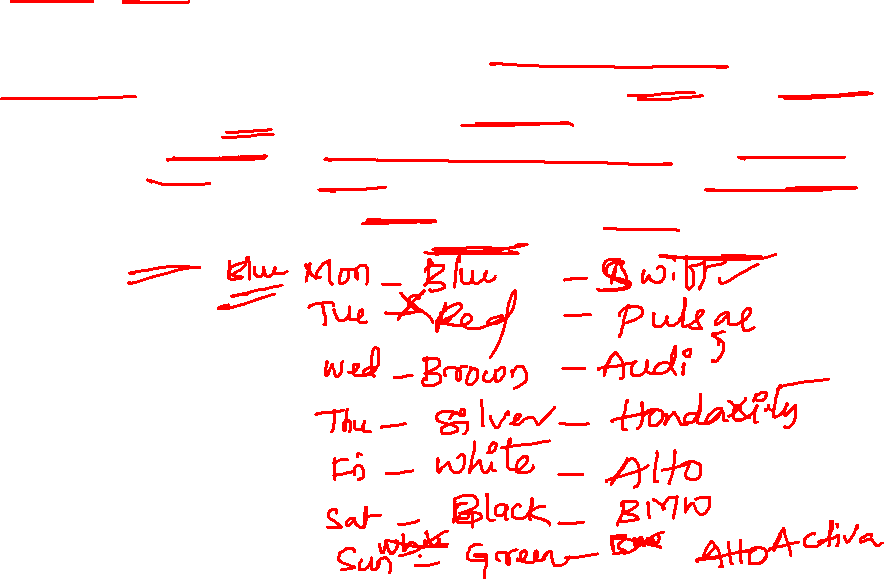 Blue Mon - Blue - Swift
Tue - Red - Pulsar
Wed - Brown - Audi
Thu - Silver - Hondaxity
Fri - White - Alto
Sat - Black - BMW
Sun - Green - Activa